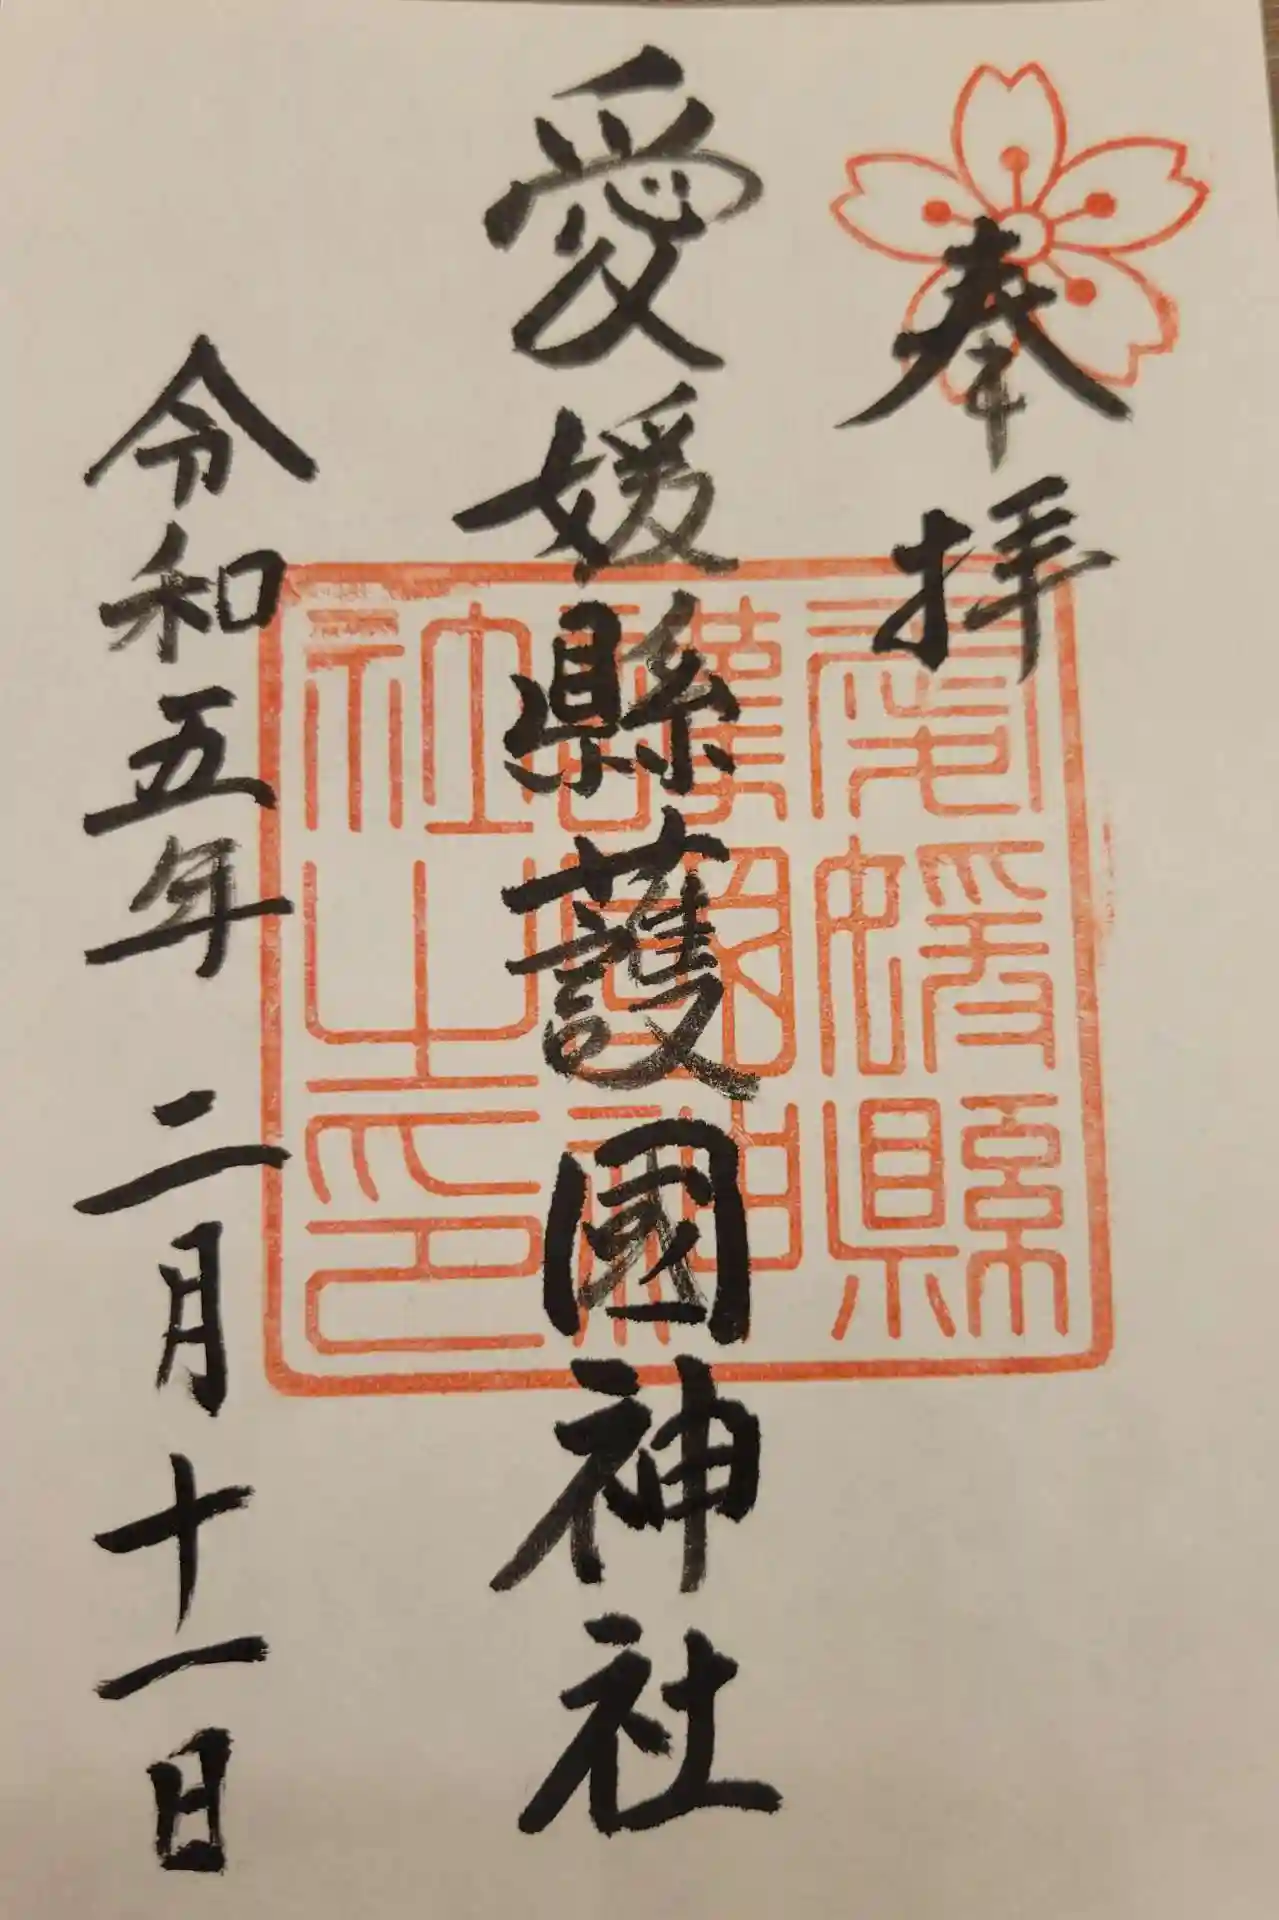 奉拝
愛媛縣護國神社
愛媛縣
護國神
社之印
令和五年二月十一日